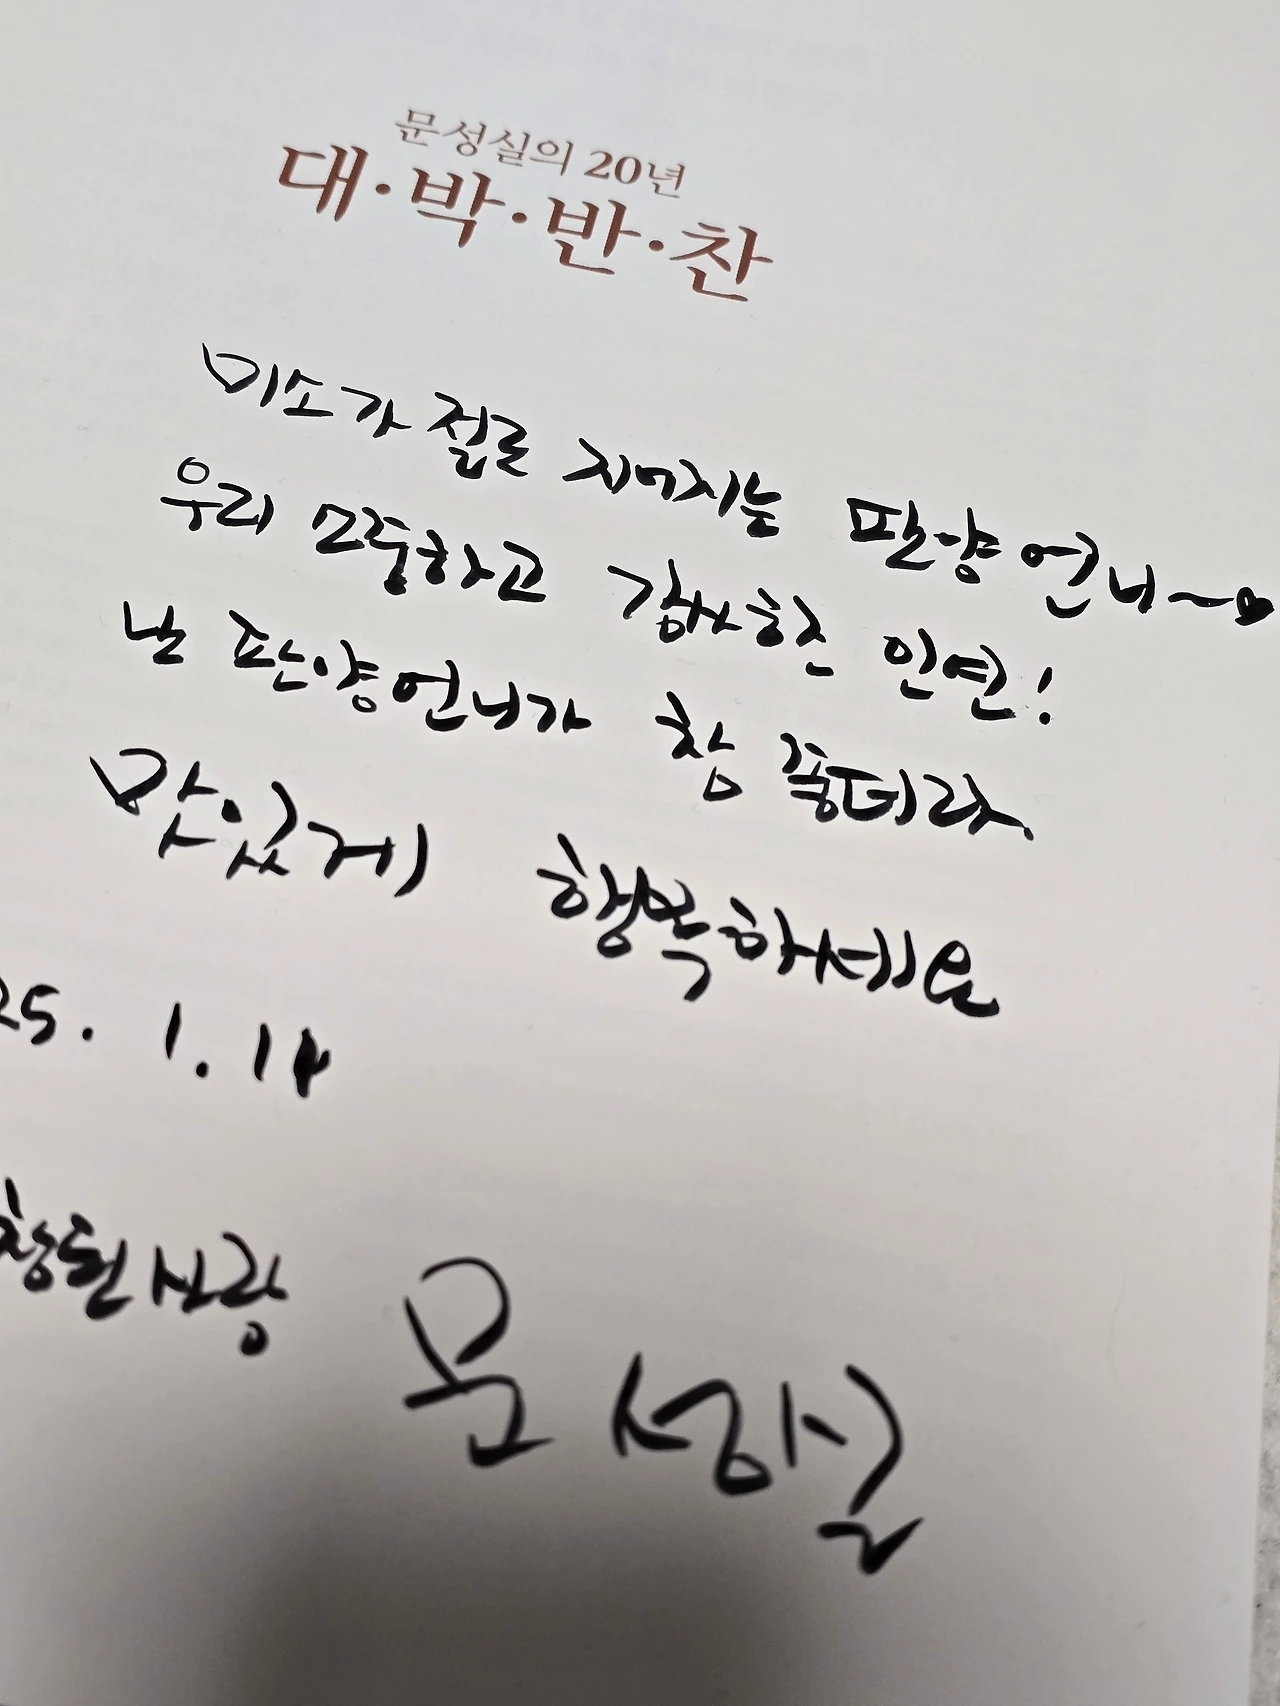 문성실의 20년
대·박·반·찬
미소가 절로 지어지는 판양언니~♥
우리 모두하고 감사한 인연!
난 판양언니가 참 좋더라
맛있게 행복하세요
25. 1. 14
사랑
문성실